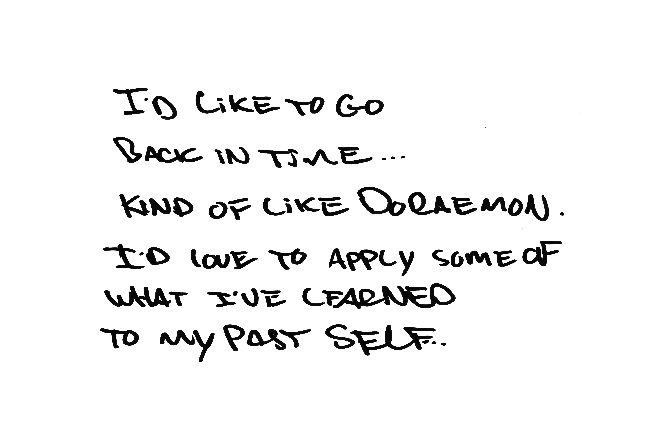 I'D LIKE TO GO
BACK IN TIME...
KIND OF LIKE DORAEMON.
I'D LOVE TO APPLY SOME OF
WHAT I'VE LEARNED
TO MY PAST SELF...